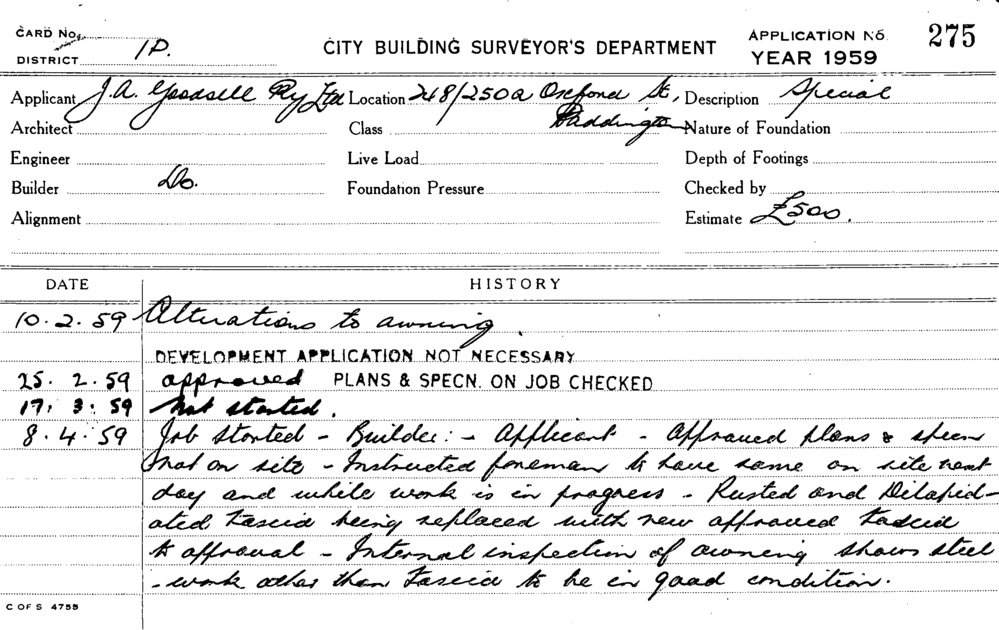 CARD No.
DISTRICT 1P.
CITY BUILDING SURVEYOR'S DEPARTMENT
APPLICATION No. 275
YEAR 1959
Applicant J.A. Goodsell Pty Ltd Location 248/250a Oxford St, Description Special
Architect Class Paddington Nature of Foundation
Engineer Live Load Depth of Footings
Builder Do. Foundation Pressure Checked by
Alignment Estimate £500.
DATE HISTORY
10.2.59 Alterations to awning.
DEVELOPMENT APPLICATION NOT NECESSARY
25.2.59 approved PLANS & SPECN. ON JOB CHECKED
17.3.59 Not started.
8.4.59 Job Started - Builder: - Applicant - Approved plans & specn
not on site - Instructed foreman to have same on site next
day and while work is in progress - Rusted and Dilapid-
ated Fascia being replaced with new approved Fascia
to approval - Internal inspection of awning shows steel
-work other than Fascia to be in good condition.
C OF S 4755